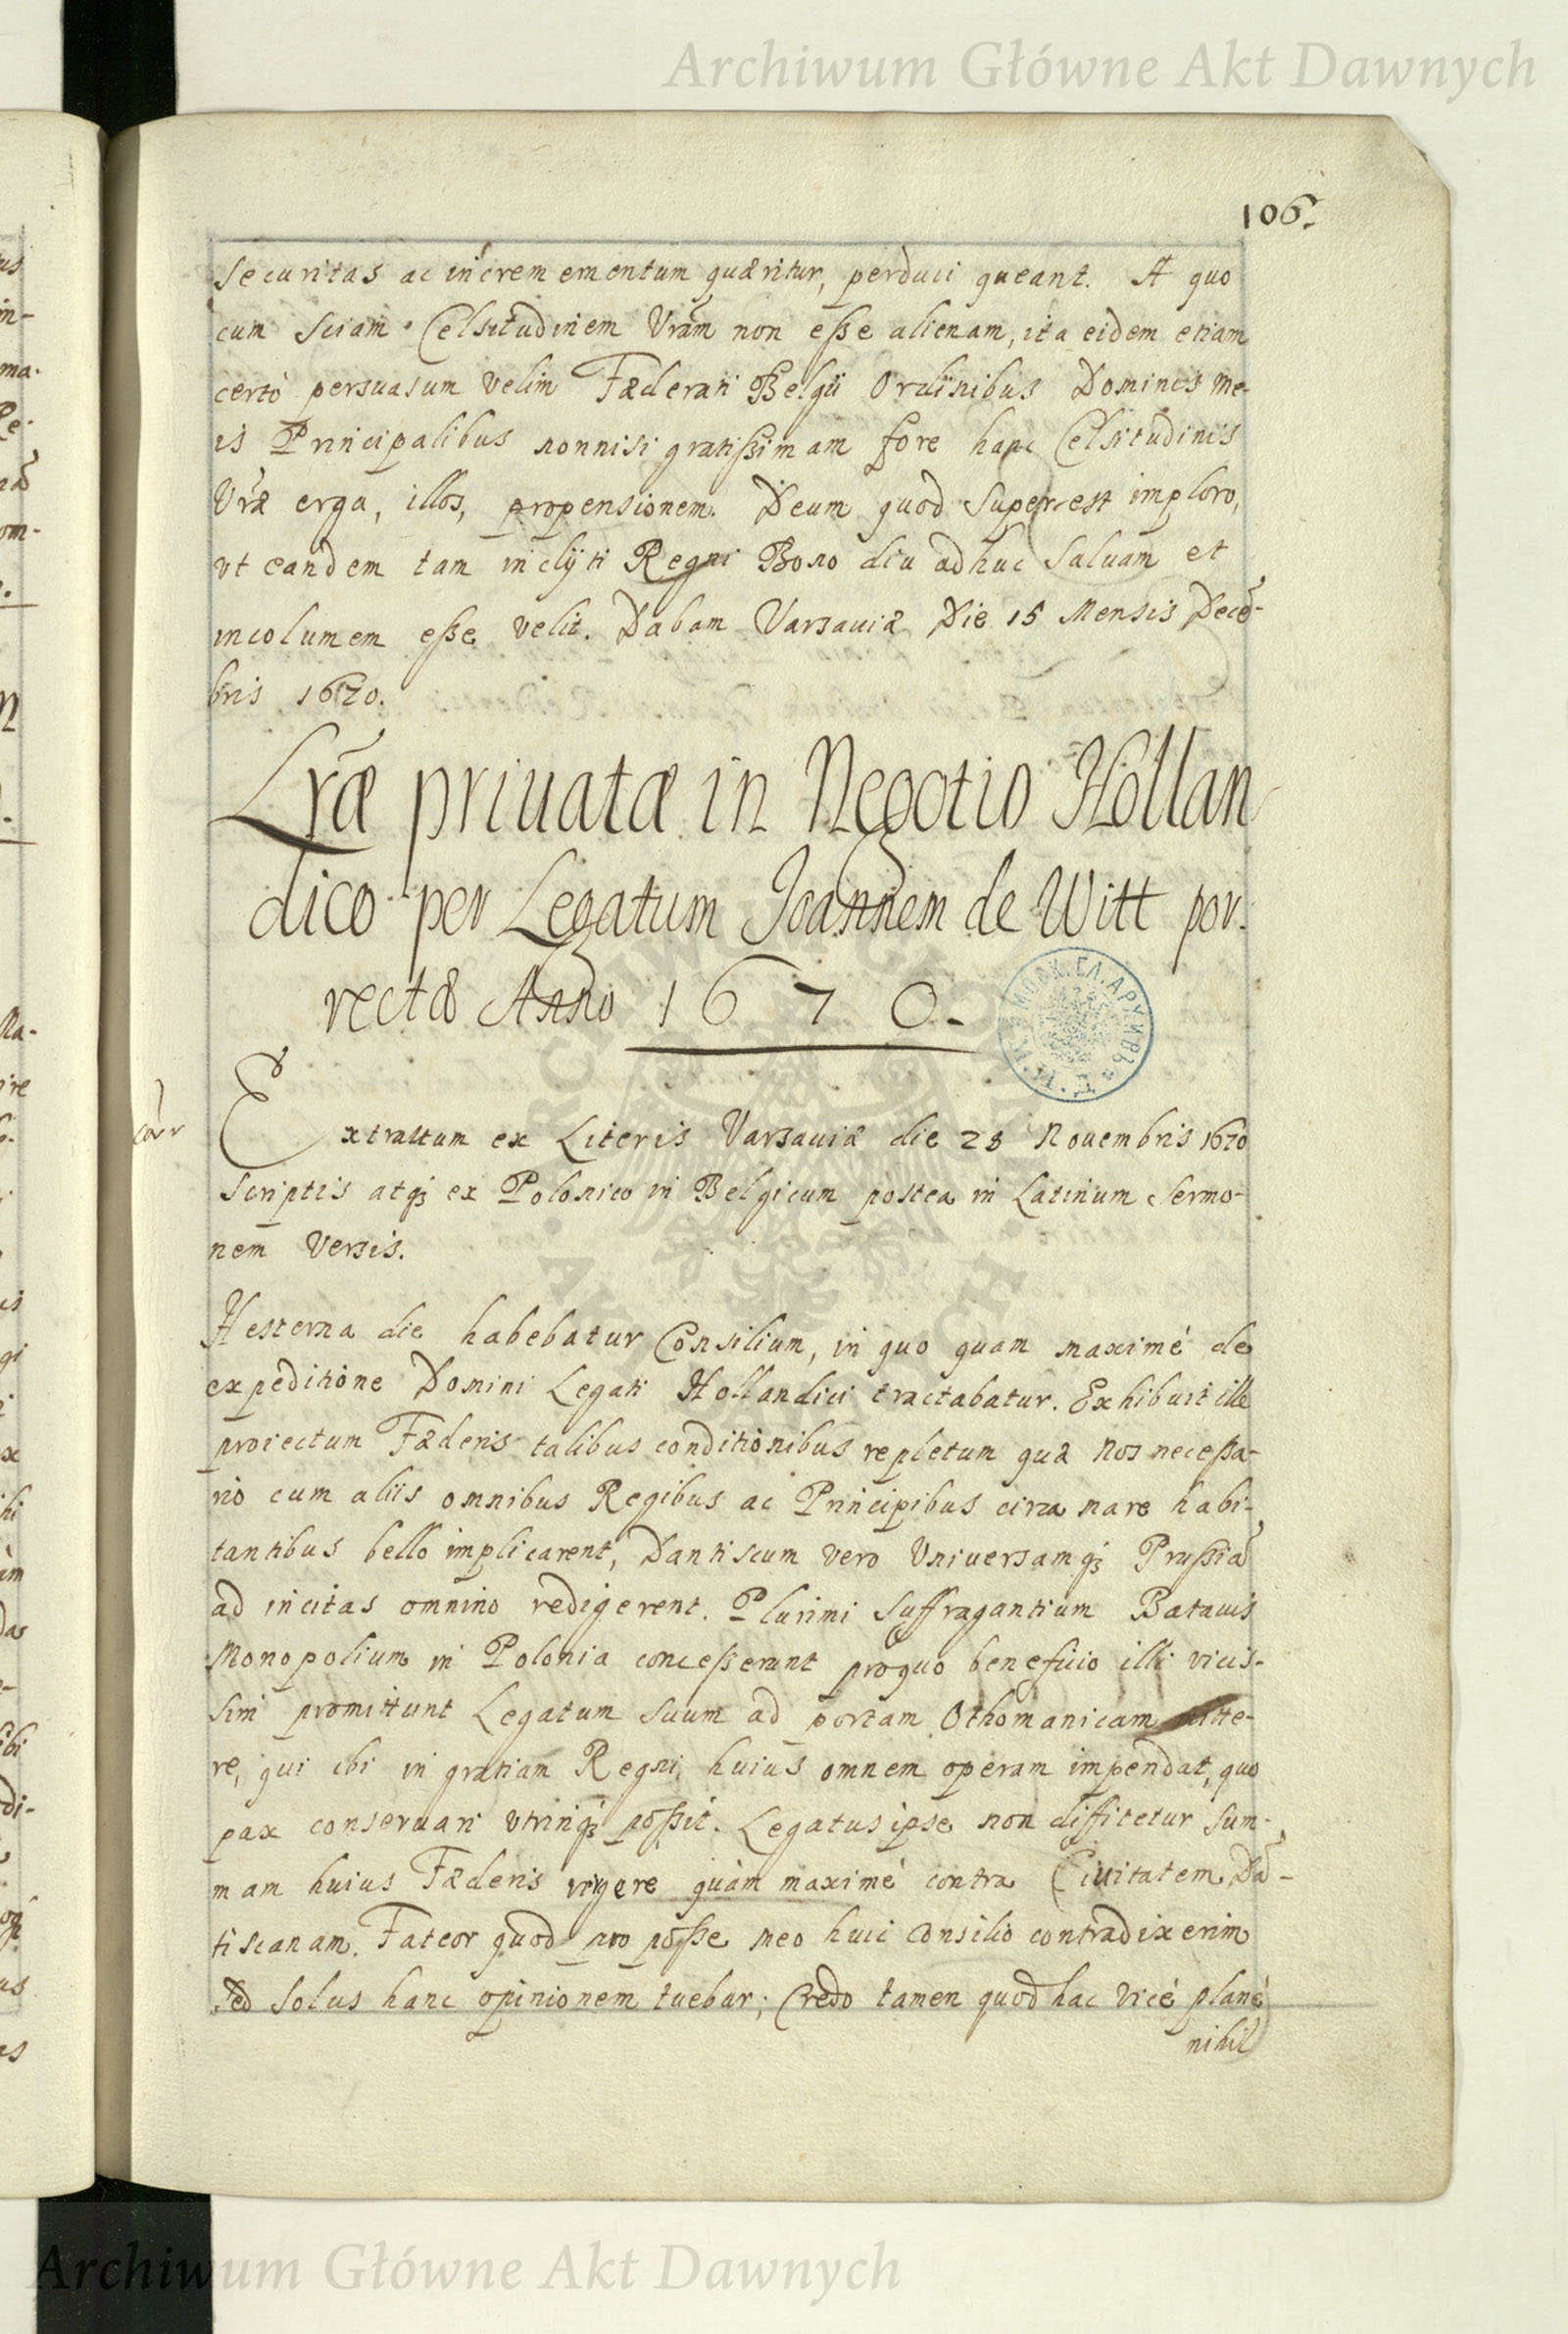 Archiwum Główne Akt Dawnych
106.
securitas ac incremementum quæritur, perduci queant. A quo
cum sciam Celsitudinem Vrãm non eße alienam, ita eidem etiam
certò persuasum velim Fæderati Belgii Ordinibus Dominis me-
is Principalibus nonnisi gratißimam fore hanc Celsitudinis
Vræ erga, illos, propensionem. Deum quod superest imploro,
vt eandem tam inclyti Regni Bono diu adhuc saluam et
incolumem eße velit. Dabam Varsauiæ Die 15 Mensis Decẽ-
bris 1670.
Lrãe priuatæ in Negotio Hollan
dico per Legatum Joannem de Witt por.
rectæ Anno 1670.
Extractum ex Literis Varsauiæ die 28 Nouembris 1670
scriptis atq; ex Polonico in Belgicum postea in Latinum sermo-
nem versis.
Hesterna die habebatur Consilium, in quo quam maximé de
expeditione Domini Legati Hollandici tractabatur. Exhibuit ille
proiectum Fæderis talibus conditionibus repletum quæ nos neceßa-
rio cum aliis omnibus Regibus ac Principibus circa mare habi-
tantibus bello implicarent, Dantiscum vero Vniuersamq; Prußiã
ad incitas omnino redigerent. Plurimi suffragantium Batauis
Monopolium in Polonia conceßerunt pro quo beneficio illi vicis-
sim promittunt Legatum suum ad portam Othomanicam mitte-
re, qui ibi in gratiam Regni huius omnem operam impendat, quo
pax conseruari vtrinq; poßit. Legatus ipse non diffitetur sum-
mam huius Fæderis vigere quàm maximé contra Ciuitatem Dã-
tiscanam. Fateor quod pro poße meo huic consilio contradixerim
sed solus hanc opinionem tuebar; Credo tamen quod hac vicé plané
nihil
Archiwum Główne Akt Dawnych